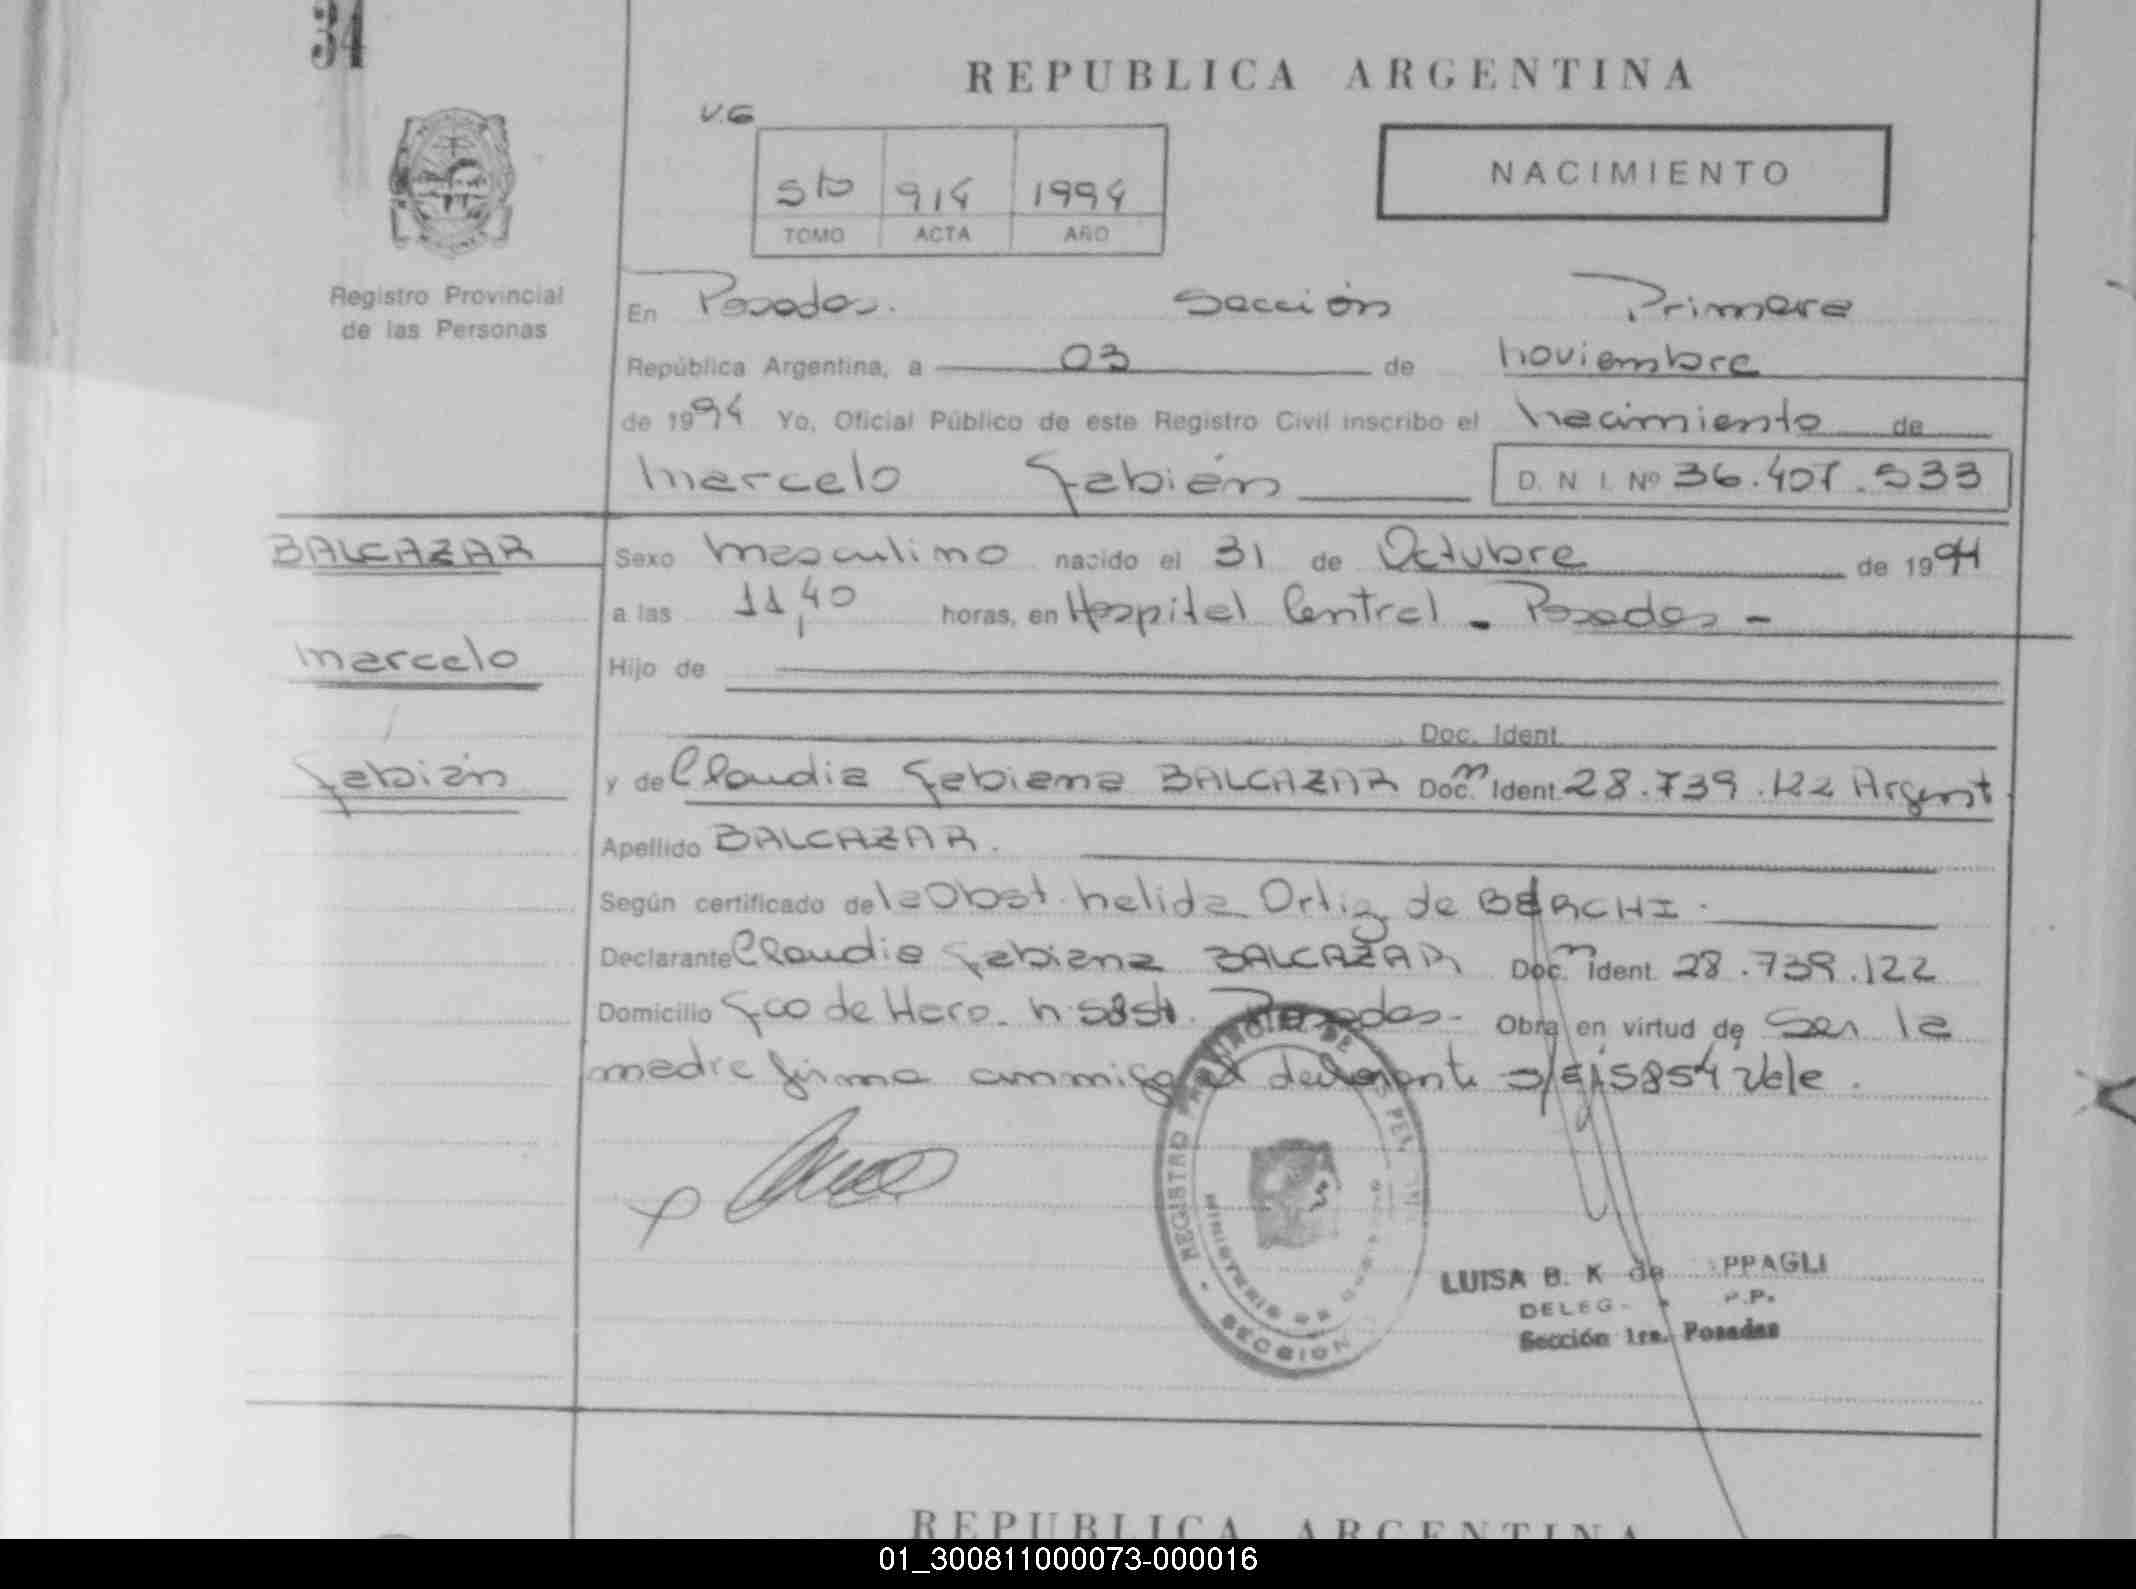 34
REPUBLICA ARGENTINA
V.G
5to 914 1994
TOMO ACTA AÑO
NACIMIENTO
Registro Provincial
de las Personas
En Posadas. Sección Primera
República Argentina, a 03 de noviembre
de 1994 Yo, Oficial Público de este Registro Civil inscribo el nacimiento de
Marcelo Fabián D. N. I. Nº 36.407.533
BALCAZAR Sexo masculino nacido el 31 de Octubre de 1994
a las 11,40 horas, en Hospital Central - Posadas -
Marcelo Hijo de
Doc. Ident.
Fabián y de Claudia Fabiana BALCAZAR Doc. Ident. 28.739.122 Argent
Apellido BALCAZAR.
Según certificado de la Obst. Nelida Ortiz de BERCHI.
Declarante Claudia Fabiana BALCAZAR Doc. Ident. 28.739.122
Domicilio Fco de Haro. N 5854. Posadas - Obra en virtud de Ser la
madre firma conmigo el declarante s/e/5854 Vale.
REGISTRO PROVINCIAL DE LAS PER
MINISTERIO DE GOBIERNO
SECCION
LUISA B. K de PPAGLI
DELEG P.P.
Sección 1ra. Posadas
REPUBLICA ARGENTINA
01_300811000073-000016